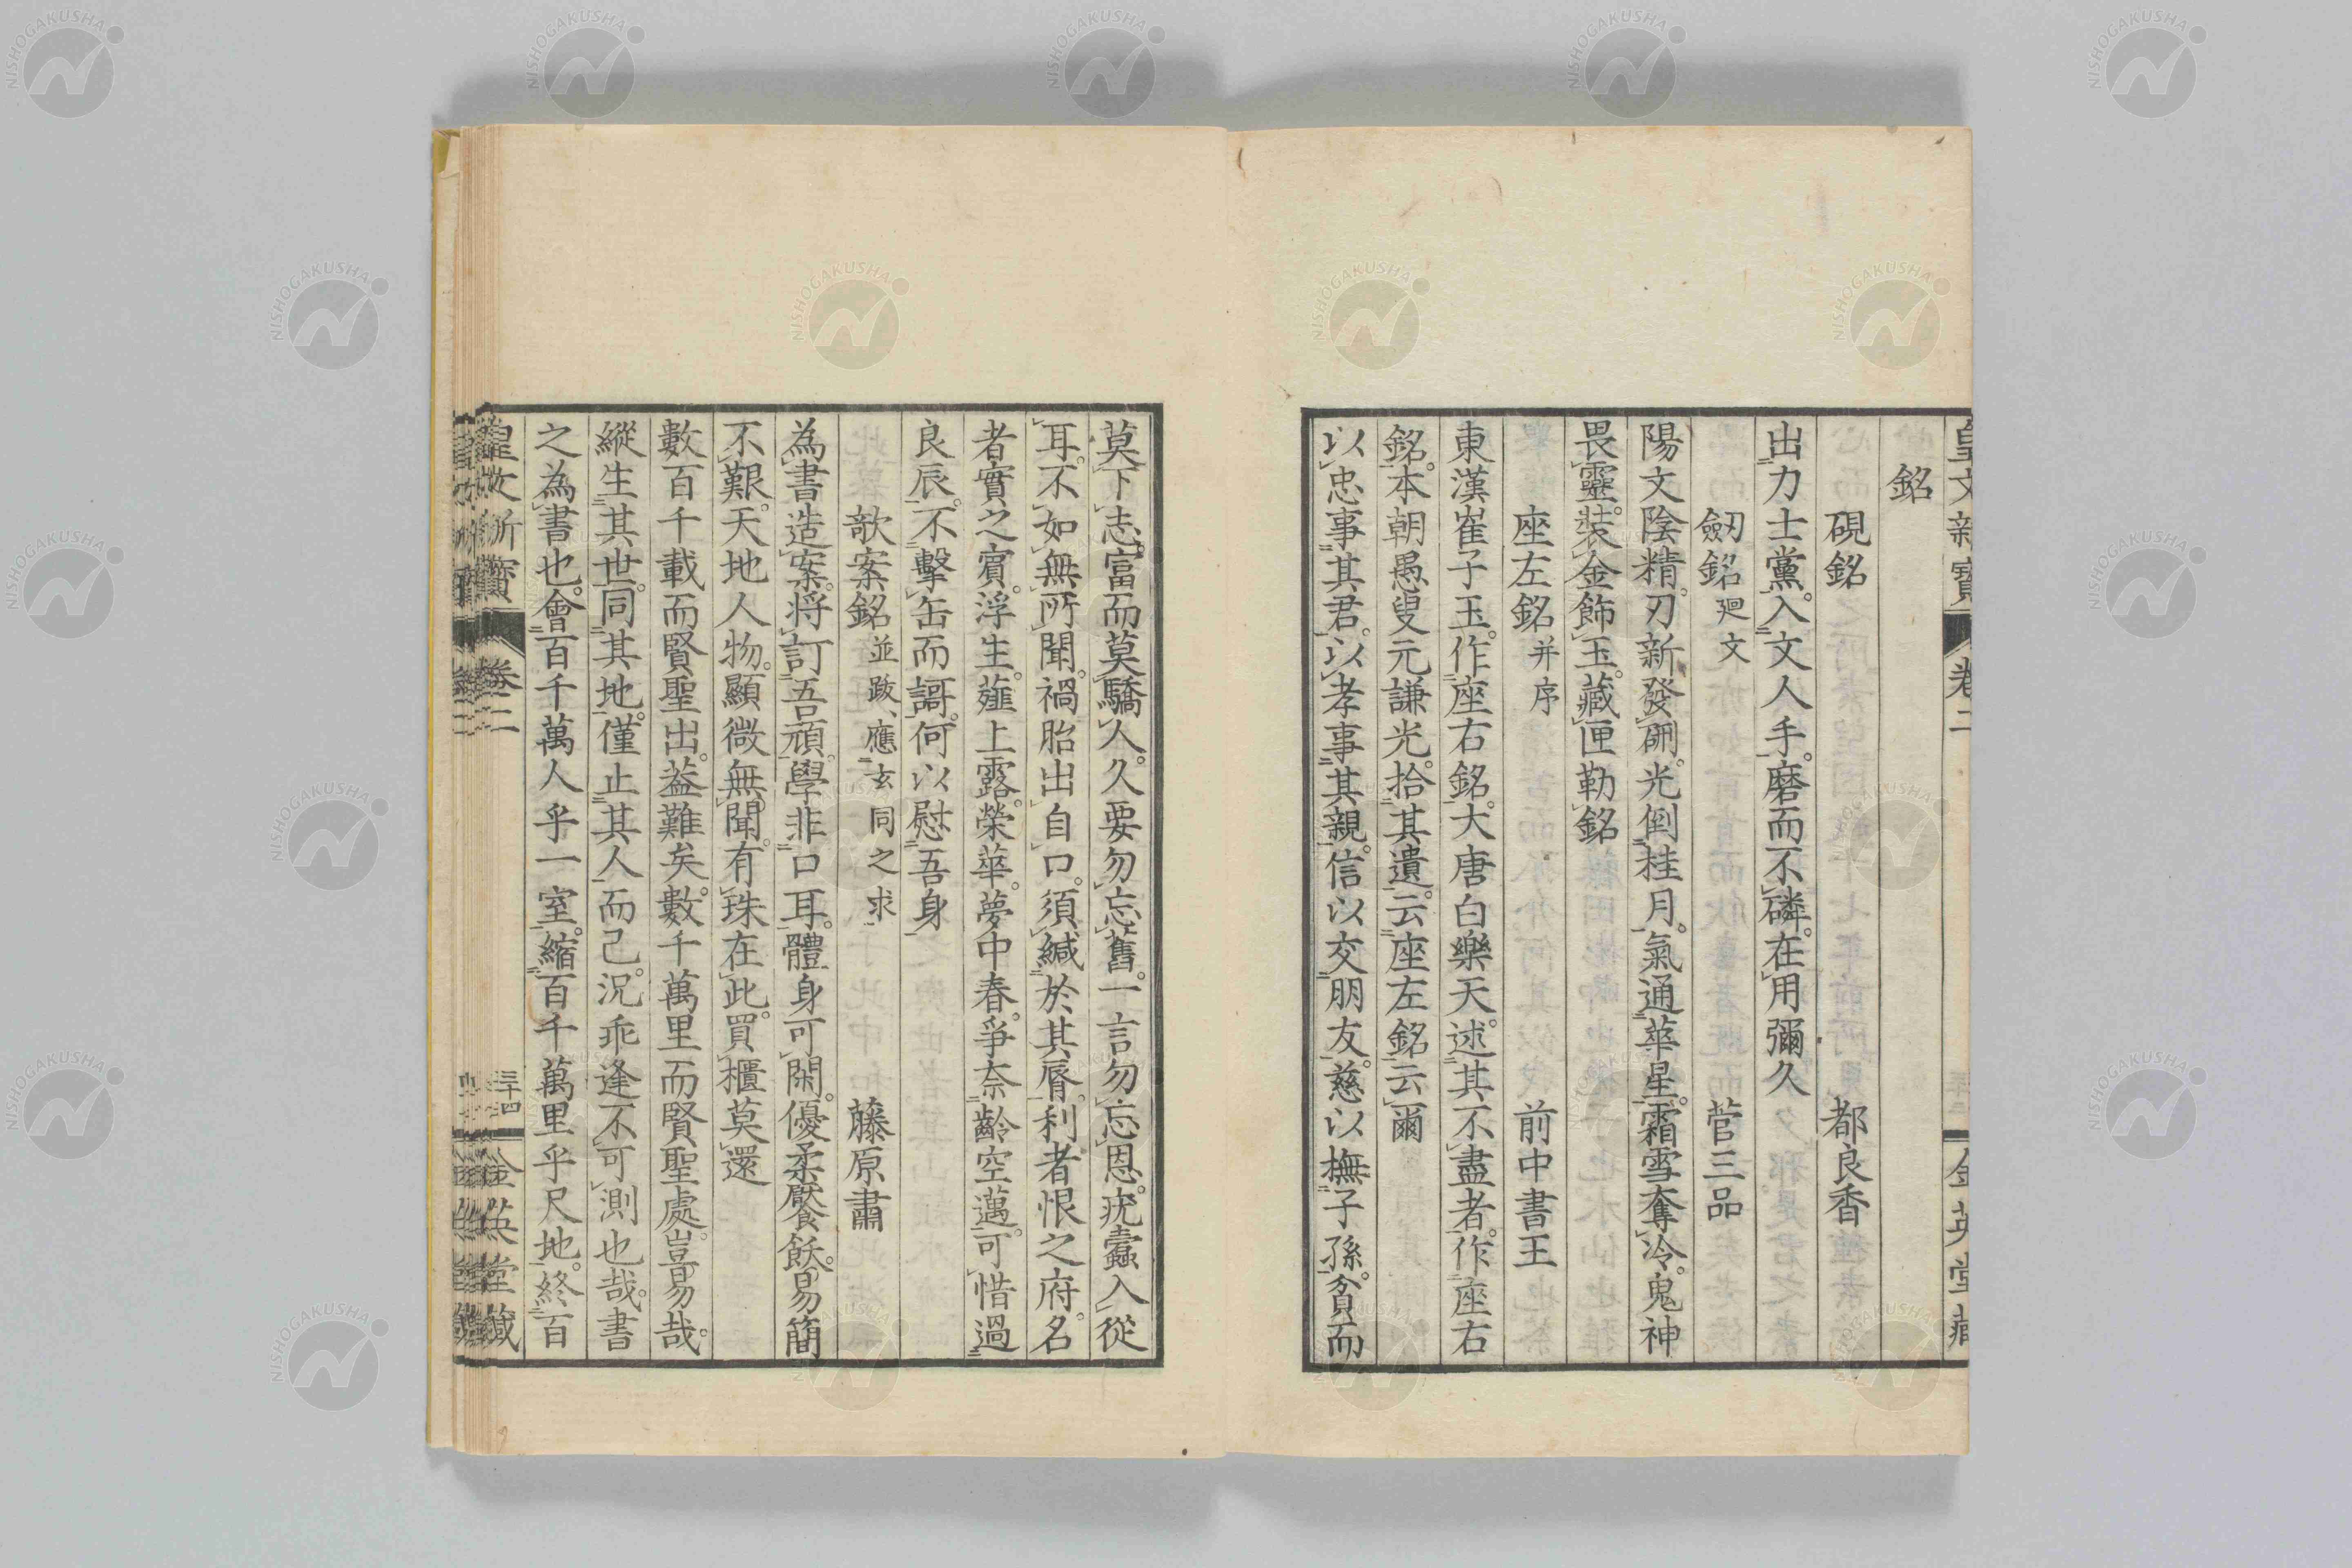 皇文新寶 卷二 金英堂藏
銘
硯銘 都良香
出力士黨。入文人手。磨而不磷。在用彌久
劒銘 廻文 菅三品
陽文陰精。刃新發硎。光倒桂月。氣通華星。霜雪奪冷。鬼神
畏靈。裝金飾玉。藏匣勒銘
座左銘 并序 前中書王
東漢崔子玉。作座右銘。大唐白樂天。述其不盡者。作座右
銘。本朝愚叟元謙光。拾其遺。云座左銘云爾
以忠事其君。以孝事其親。信以交朋友。慈以撫子孫。貧而
莫下志。富而莫驕人。久要勿忘舊。一言勿忘恩。疣蠹入從
耳。不如無所聞。禍胎出自口。須緘於其脣。利者恨之府。名
者實之賓。浮生薤上露。榮華夢中春。爭奈齡空邁。可惜過
良辰。不擊缶而謌。何以慰吾身
歌案銘 並跋、應玄同之求 藤原肅
為書造案。將訂吾頑。學非口耳。體身可閑。優柔饜飫。易簡
不艱。天地人物。顯微無聞。有珠在此。買櫃莫還
數百千載而賢聖出。葢難矣。數千萬里而賢聖處。豈易哉。
縱生其世。同其地。僅止其人而己。況乖逢不可測也哉。書
之為書也。會百千萬人乎一室。縮百千萬里乎尺地。終百
皇文新寶 卷二 三十四 金英堂藏